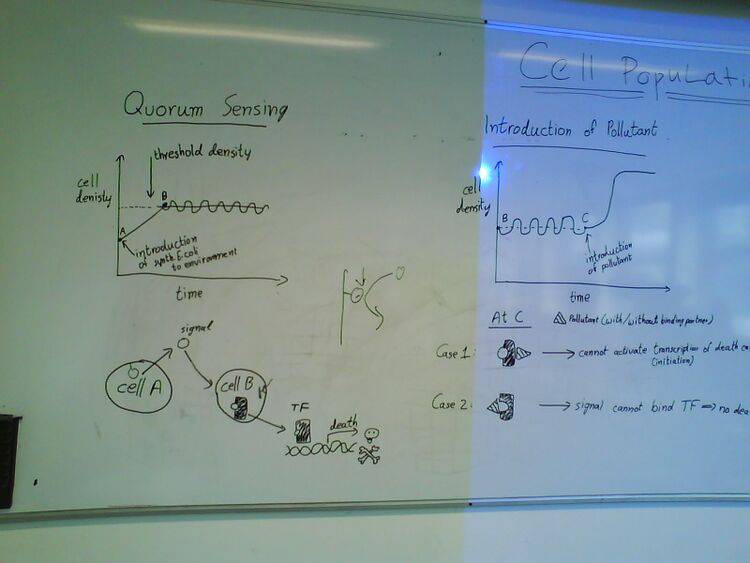 Quorum Sensing
threshold density
cell
denisty
B
A
introduction
of synth E.coli
to environment
time
signal
cell A
cell B
TF
death
Cell Populati
Introduction of Pollutant
cell
density
B
C
introduction
of pollutant
time
At C
Pollutant (with/without binding partner)
Case 1:
cannot activate transcription of death ca
(initiation)
Case 2:
signal cannot bind TF ⇒ no dea